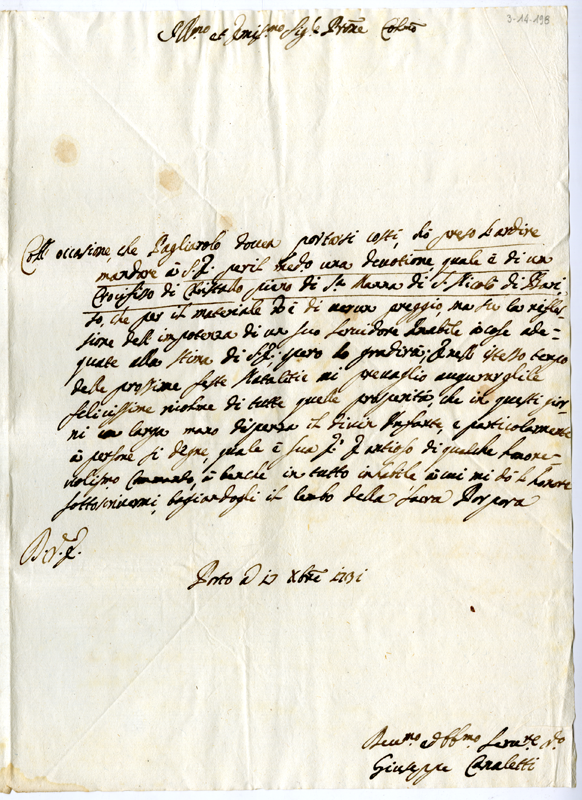 3-14-198
Ill.mo et Em.mo Sig.re P.rone Col.mo
Coll' occasione, che Pagliarolo dovea portarsi costì, hò preso l'ardire
mandare à S.E. per il med.o una devotione quale è di un
Crocifisso di Christallo pieno di S.ta Manna di S. Nicolò di Bari
so, che per il materiale è di niun preggio, ma su la refles-
sione dell'impotenza di un suo servidore inabile à cose ade-
quate alla stima di S.E. spero lo gradirà; E nell'istesso tempo
delle prossime feste Natalitie mi prevaglio augurargliele
felicissime ricolme di tutte quelle prosperità che in questi gior-
ni con larga mano dispenza il divin Infante, e particolarmente
à persone sì degne, quale è sua E. E antioso di qualche honore-
volissimo Commando, à benche in tutto inhabile à cui mi dò l'honore
sottoscrivermi, baciandogli il lembo della sacra Porpora
D. V. E.
Porto à 17 Xbre 1731
Dev.mo ed Obb.mo Serv.re V.o
Giuseppe Canaletti